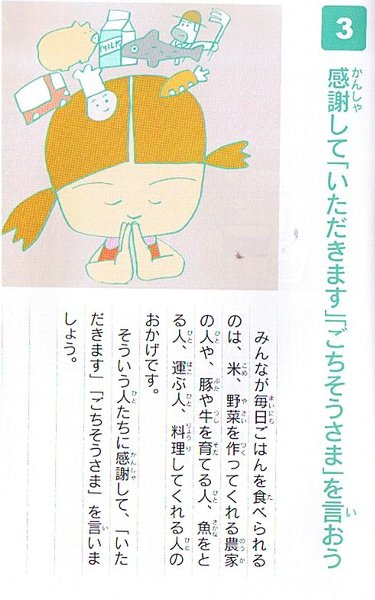 3
感謝して「いただきます」「ごちそうさま」を言おう
みんなが毎日ごはんを食べられる
のは、米、野菜を作ってくれる農家
の人や、豚や牛を育てる人、魚をと
る人、運ぶ人、料理してくれる人の
おかげです。
そういう人たちに感謝して、「いた
だきます」「ごちそうさま」を言いま
しょう。
MILK